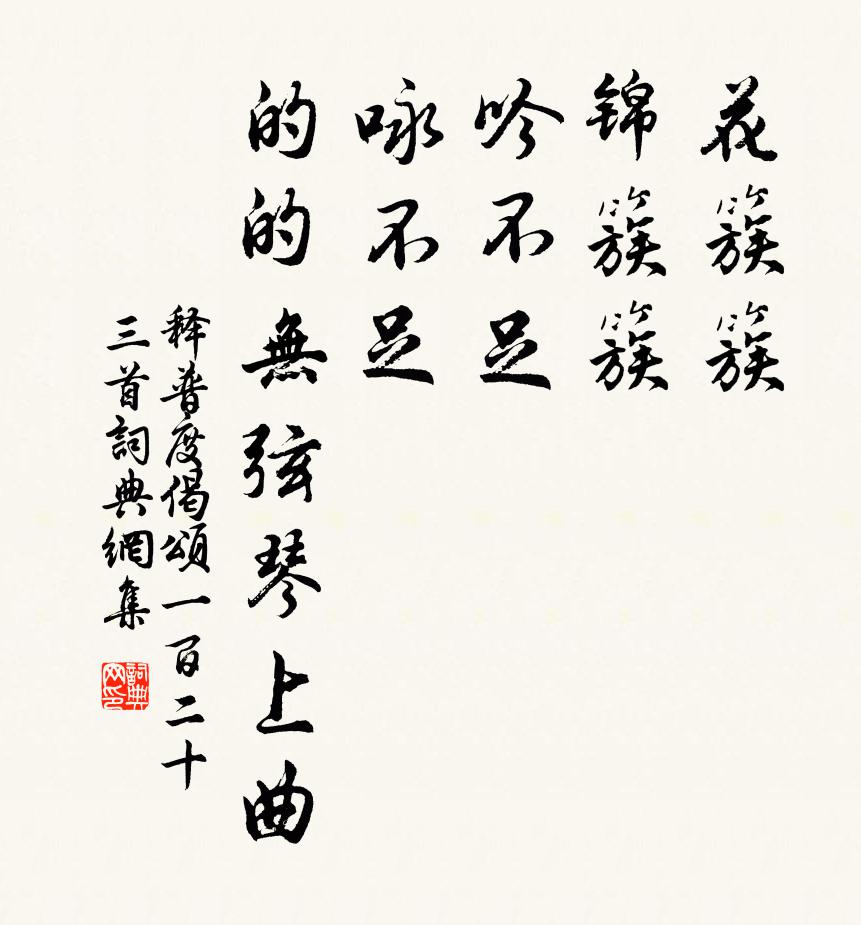 花簇簇
锦簇簇
吟不足
咏不足
的的無弦琴上曲
释普度偈頌一百二十
三首詞典網集
詞典
网印